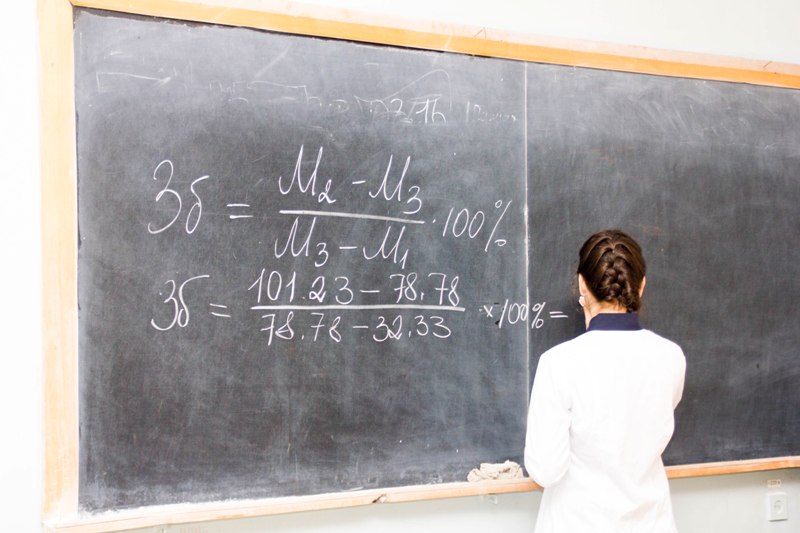 Зб = M₂ - M₃ / M₃ - M₁ · 100%
Зб = 101.23 - 78.78 / 78.78 - 32.33 × 100% =